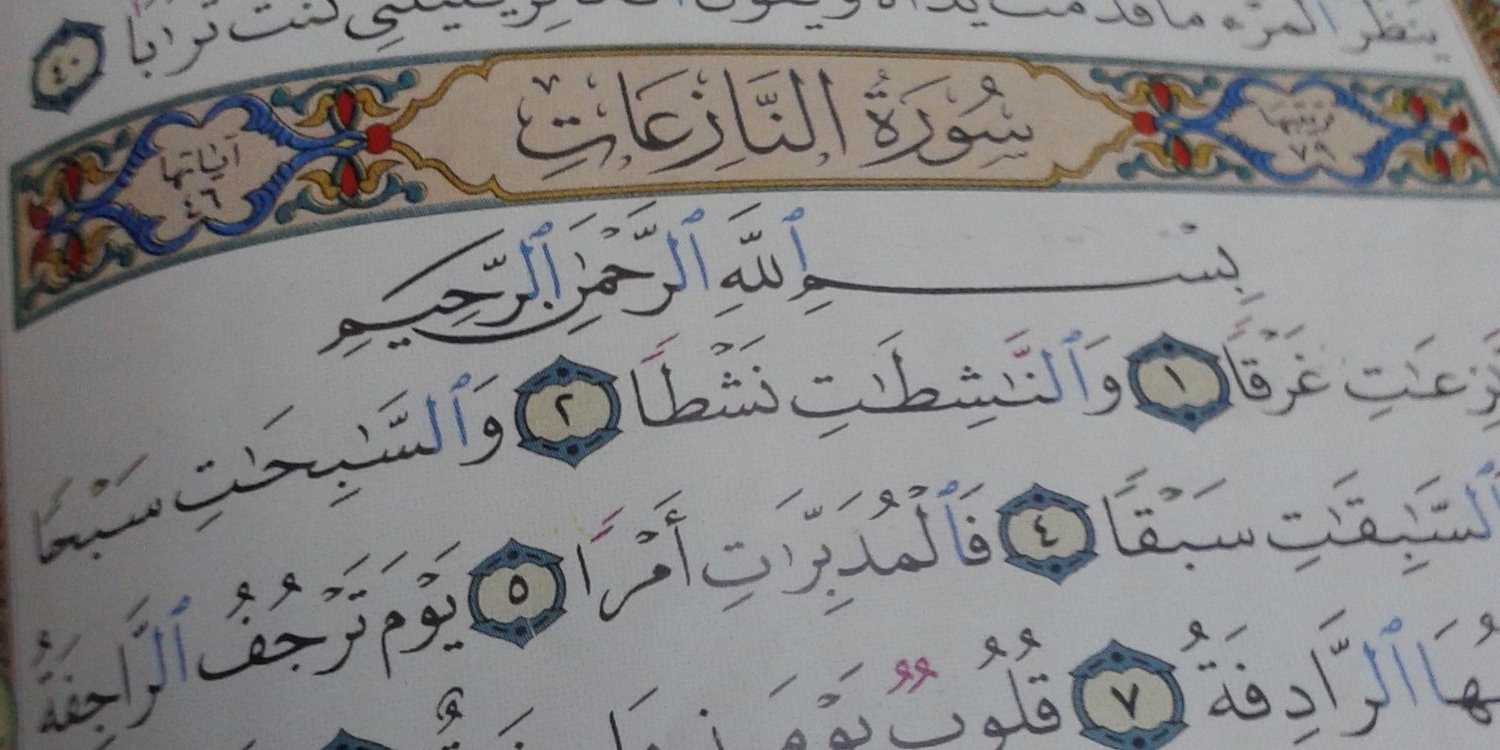 ينظر المرء ما قدمت يداه ويقول الكافر يليتني كنت ترابا ٤٠
ترتيبها ٧٩ سُورَةُ النَّازِعَاتِ آياتها ٤٦
بِسْمِ ٱللَّهِ ٱلرَّحْمَٰنِ ٱلرَّحِيمِ
غَرْقًا ١ وَٱلنَّٰشِطَٰتِ نَشْطًا ٢ وَٱلسَّٰبِحَٰتِ سَبْحًا
ٱلسَّٰبِقَٰتِ سَبْقًا ٤ فَٱلْمُدَبِّرَٰتِ أَمْرًا ٥ يَوْمَ تَرْجُفُ ٱلرَّاجِفَةُ
ٱلرَّادِفَةُ ٧ قُلُوبٌ يَوْمَ